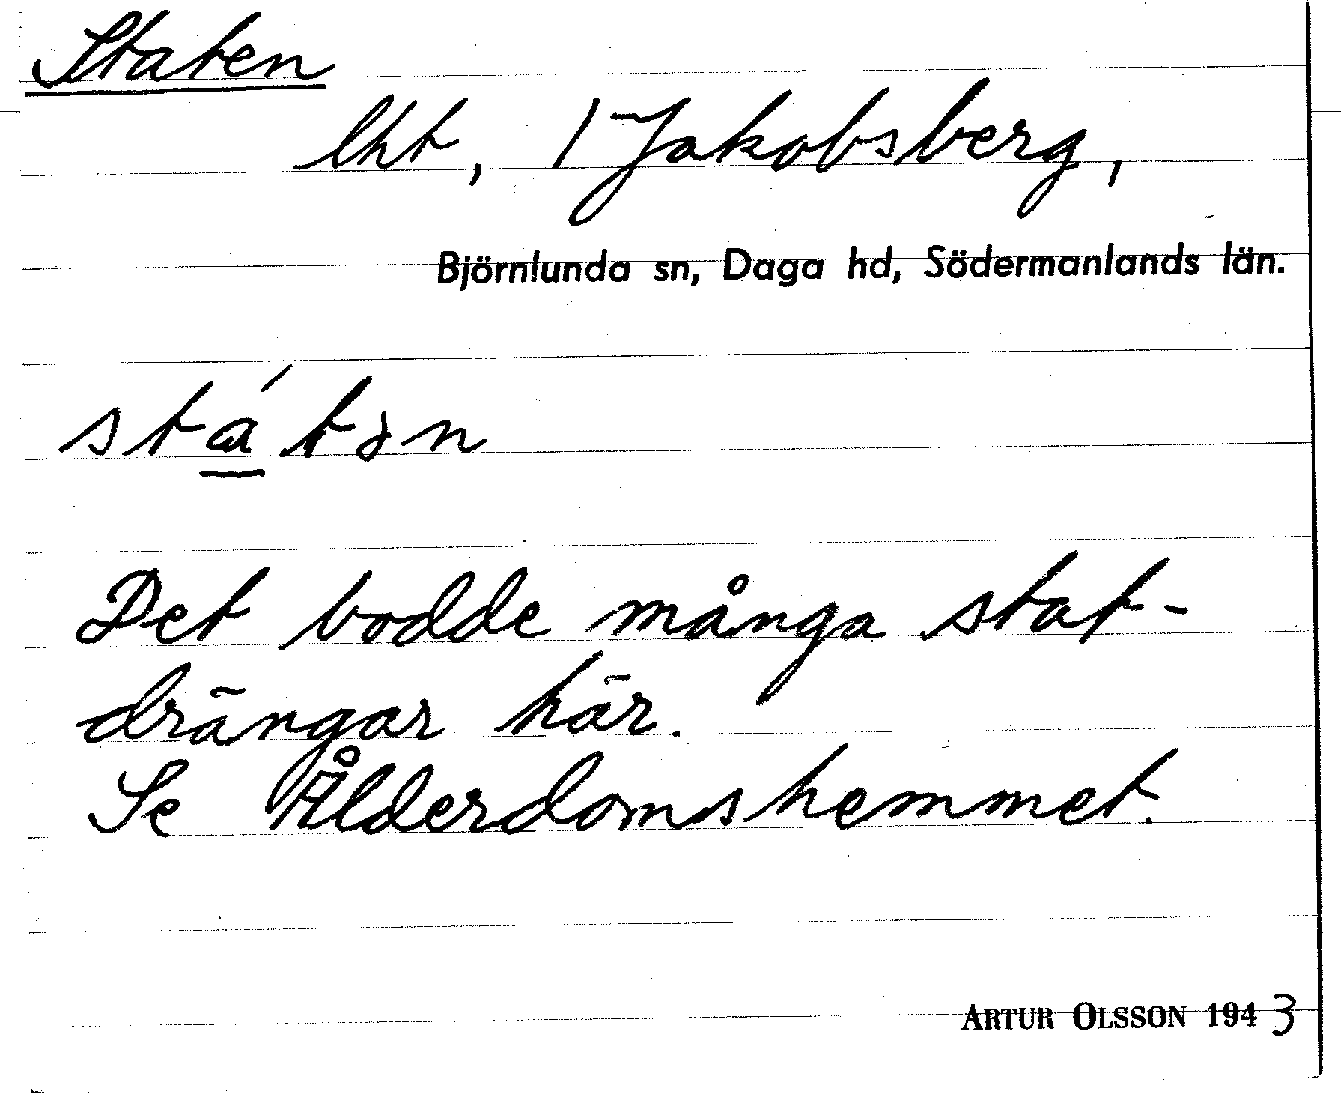 Staten
lht, 1 Jakobsberg,
Björnlunda sn, Daga hd, Södermanlands län.
stɑ́tən
Det bodde många stat-
drängar här.
Se Ålderdomshemmet.
ARTUR OLSSON 1943